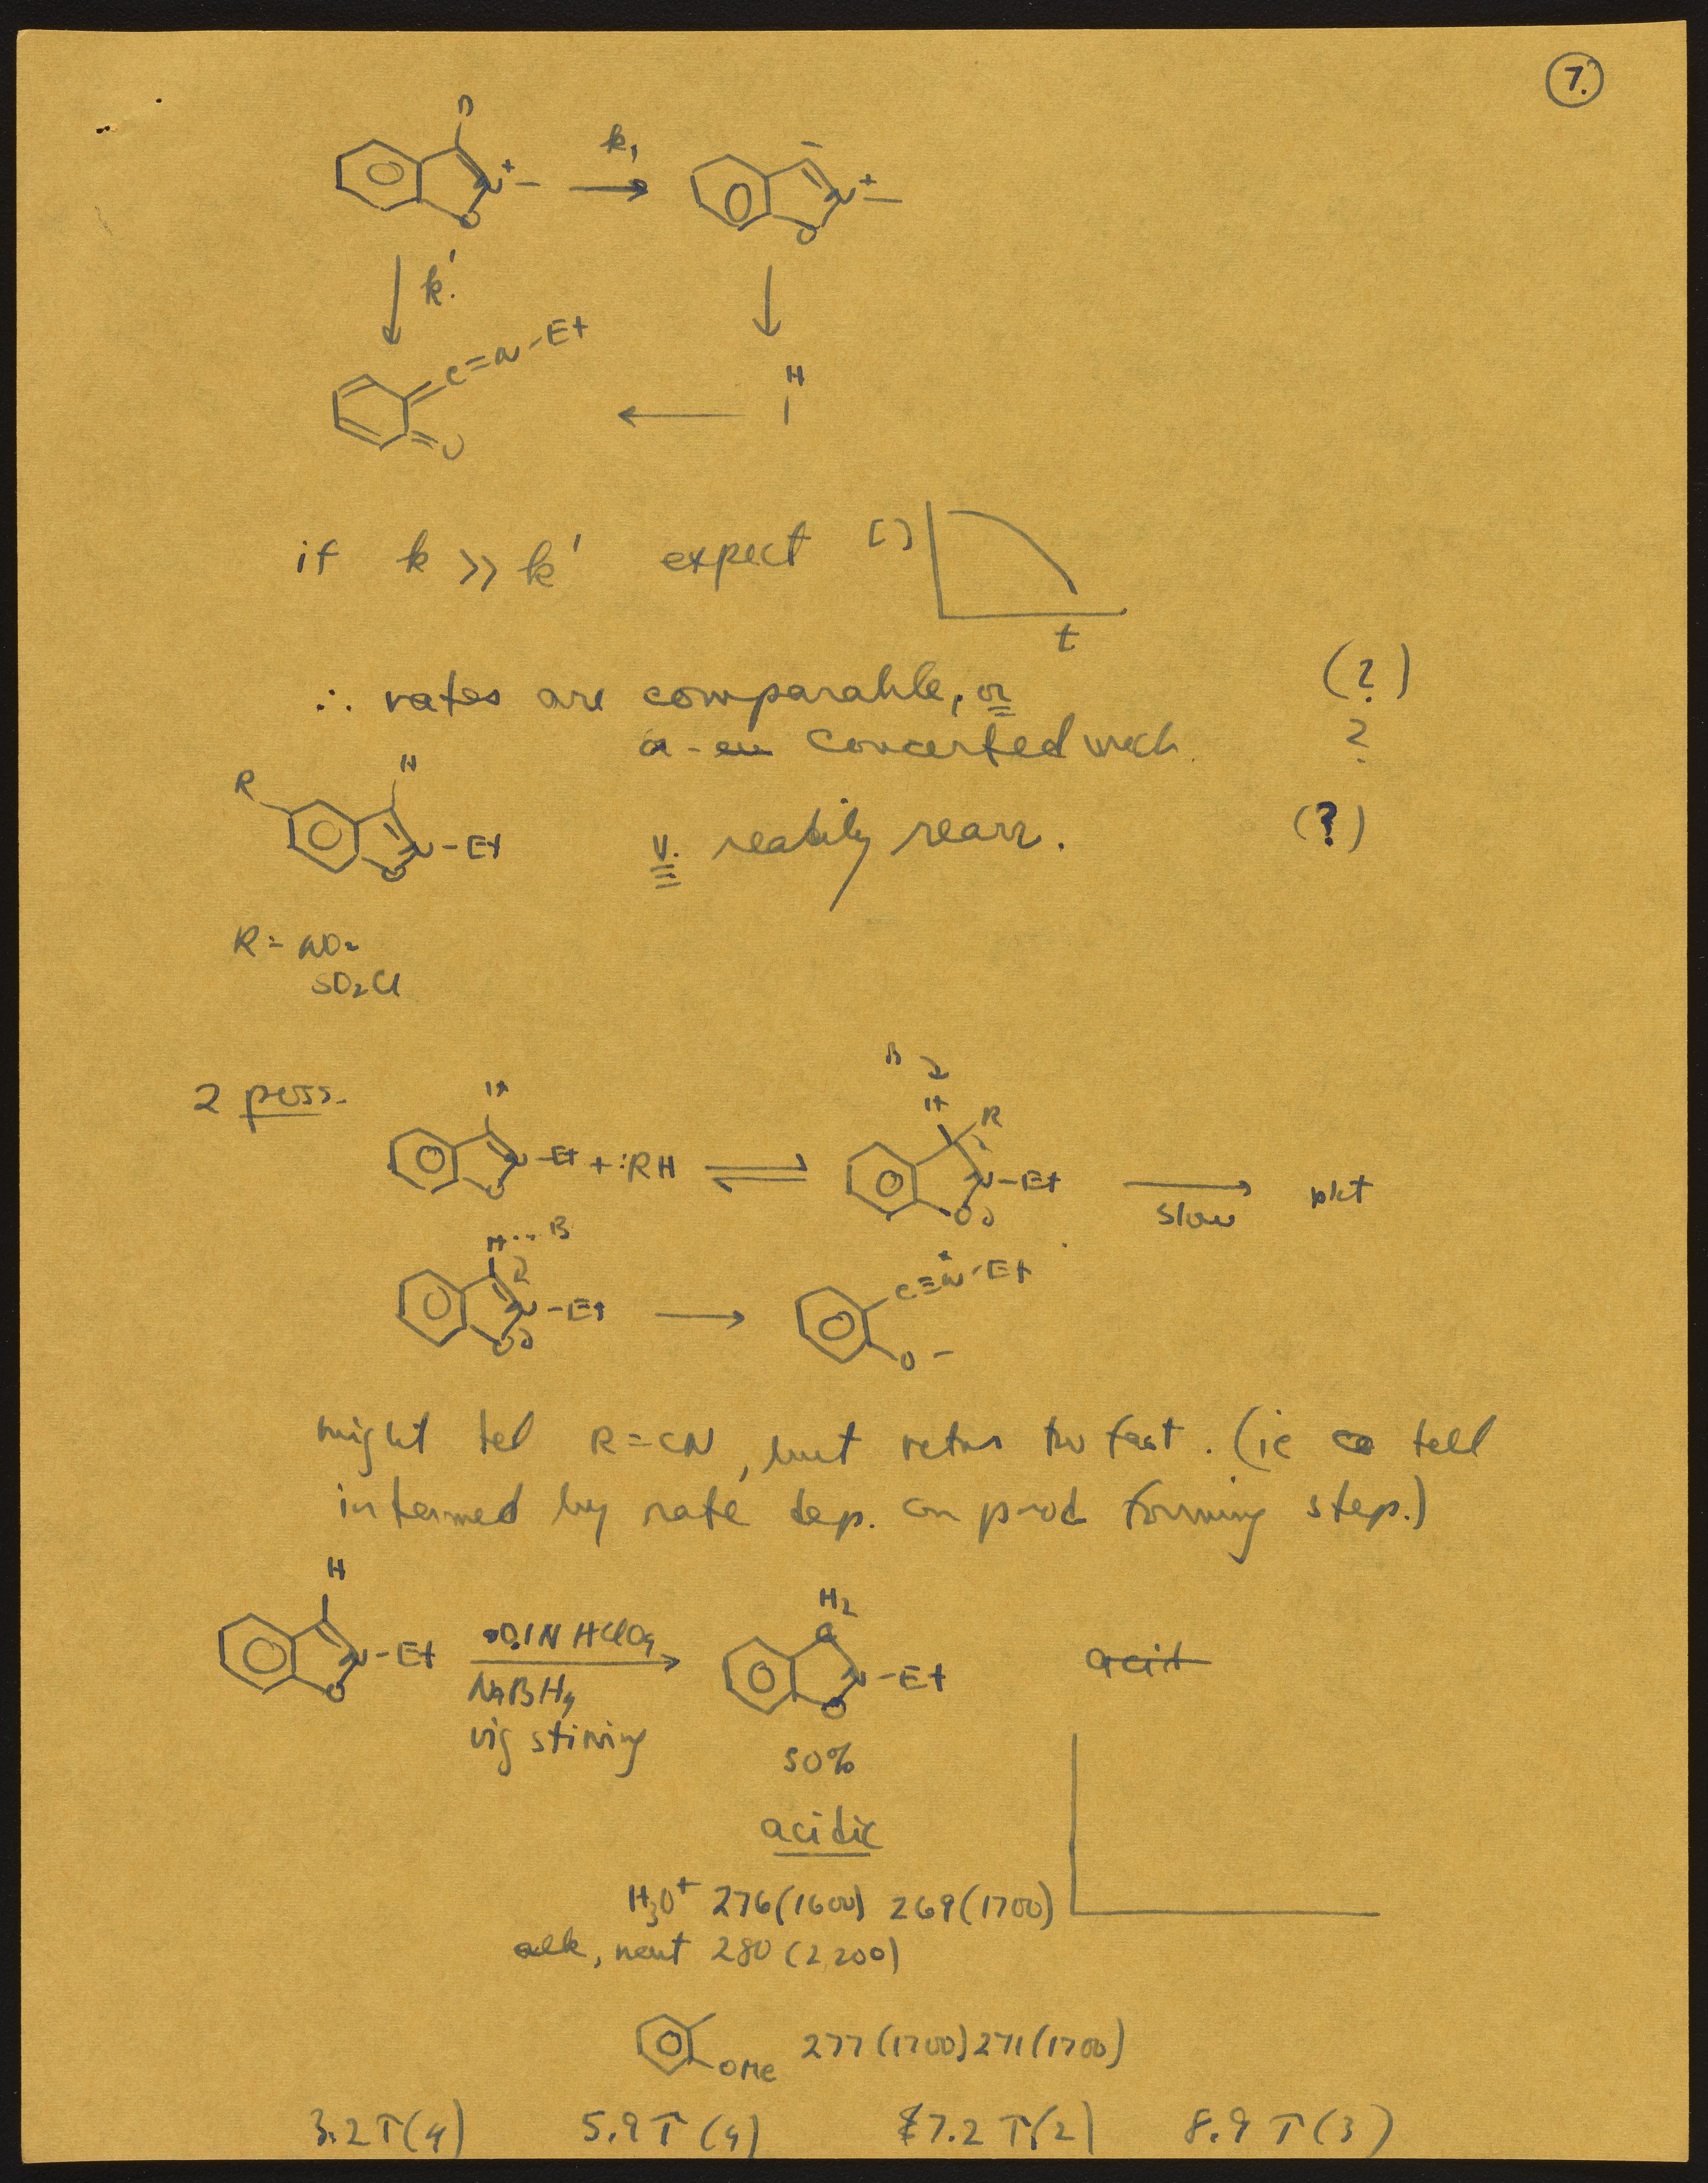 7.
D
k,
N+ –
O
N+ –
O
k'
C=N-Et
O
H
if k >> k' expect [ ]
t
∴ rates are comparable, or (?)
a - en concerted mech. ?
R H
N-Et
O
v. readily rearr. (?)
R = NO2
SO2Cl
2 poss.
H
N-Et + :RH
O
B
H R
N-Et
O
slow
pdt
H ·· B
N-Et
O
C≡N+-Et
O –
might tell R=CN, but return too fast. (ie tell
intermed by rate dep. on prod forming step.)
H
N-Et
O
0.1N HClO4
NaBH4
vig stirring
H2
C
N-Et
O
acid
50%
acidic
H3O+ 276(1600) 269(1700)
alk, neut 280 (2200)
OMe 277(1700) 271(1700)
3.2 T(4) 5.9 T(4) 7.2 T(2) 8.9 T(3)